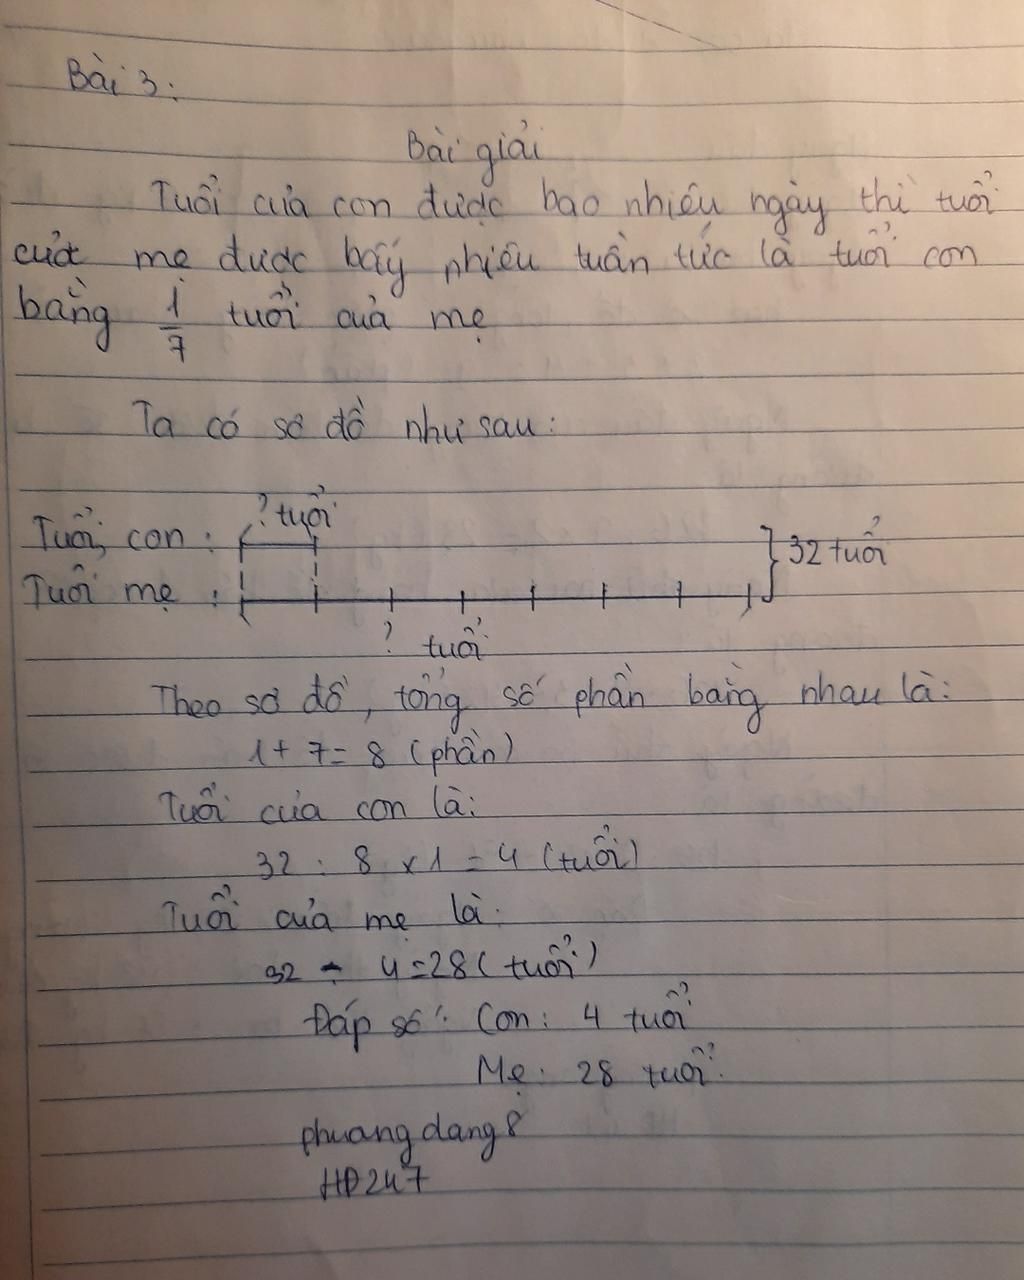 Bài 3:
Bài giải
Tuổi của con được bao nhiêu ngày thì tuổi
của mẹ được bấy nhiêu tuần tức là tuổi con
bằng 1/7 tuổi của mẹ
Ta có sơ đồ như sau:
? tuổi
Tuổi con :
32 tuổi
Tuổi mẹ :
? tuổi
Theo sơ đồ, tổng số phần bằng nhau là:
1 + 7 = 8 (phần)
Tuổi của con là:
32 : 8 x 1 = 4 (tuổi)
Tuổi của mẹ là:
32 - 4 = 28 (tuổi)
Đáp số: Con: 4 tuổi
Mẹ: 28 tuổi.
phuangdang8
HĐ247